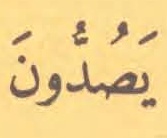 يَصُدُّونَ